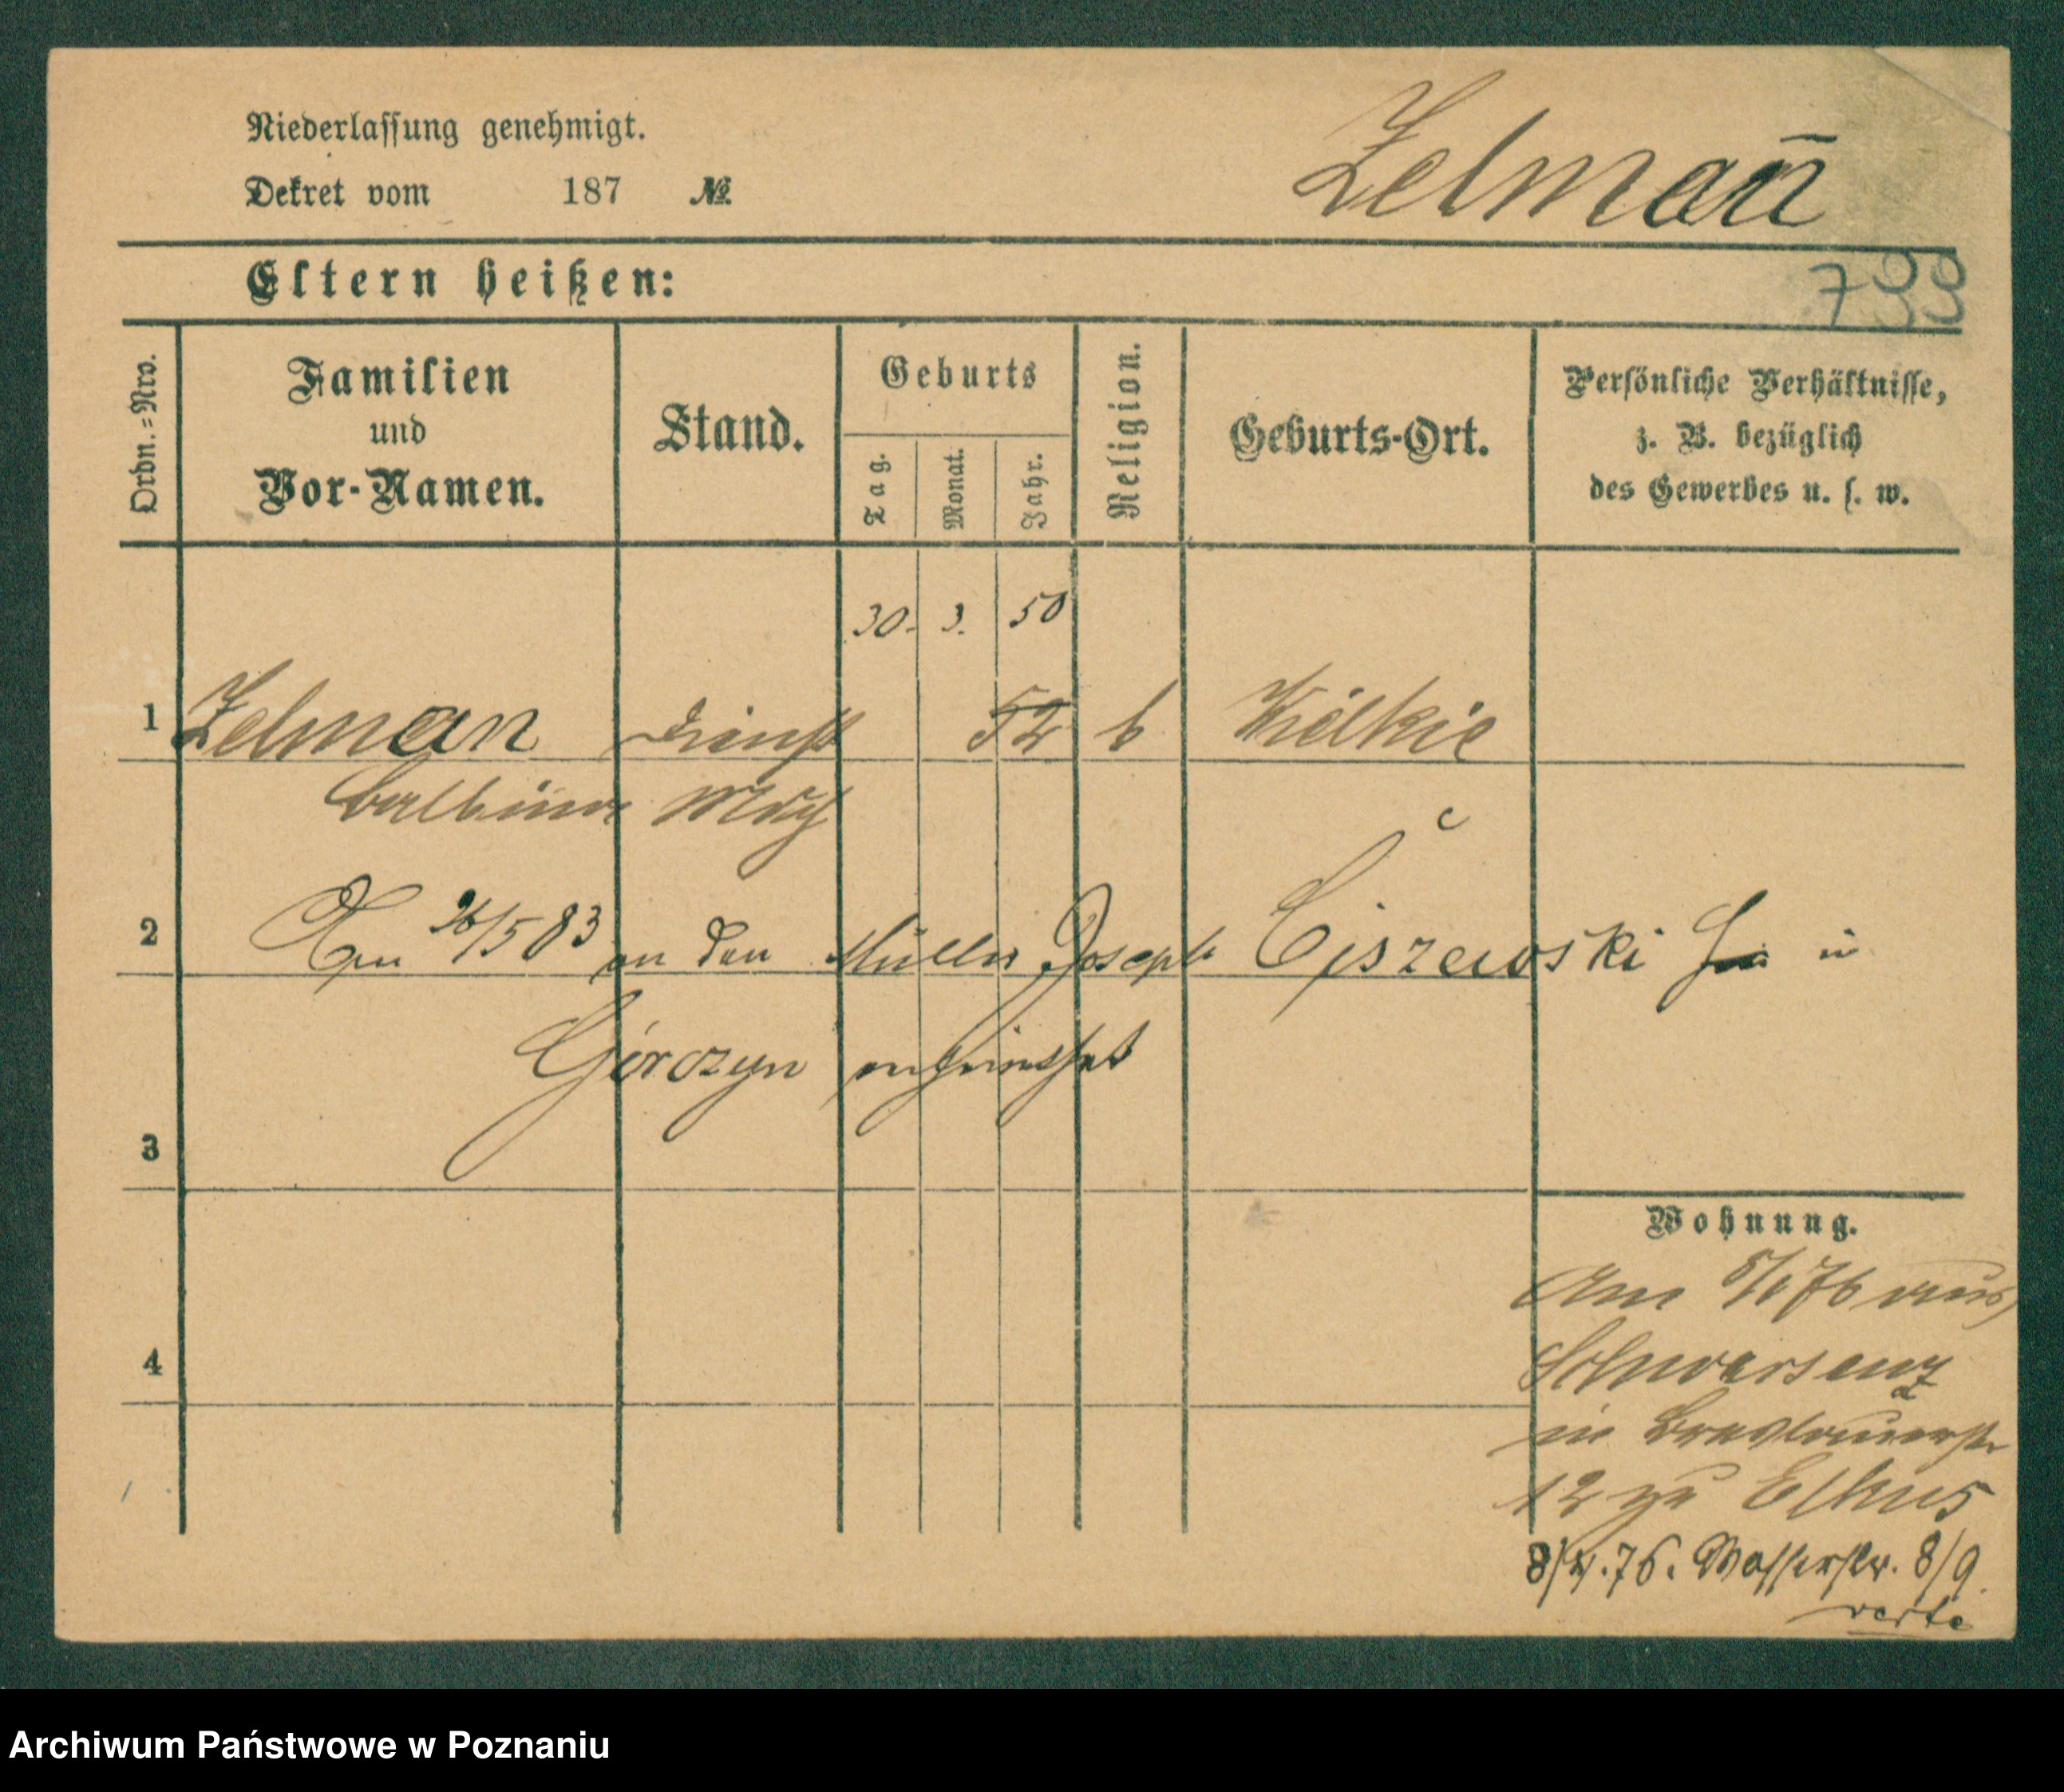 Niederlassung genehmigt.
Dekret vom 187 №
Zelman̄
Eltern heißen:
799
Ordn.=Nro.
Familien
und
Vor-Namen.
Stand.
Geburts
Tag.
Monat.
Jahr.
Religion.
Geburts-Ort.
Persönliche Verhältnisse,
z. B. bezüglich
des Gewerbes u. s. w.
30. 3. 50
1 Zelman Dienst 52 k
Balbina
2 Am 26/5 83 an den Müller Joseph Ciszewski in
Górczyn verheirathet
3
Wohnung.
Am 5/1 76 aus
Schwersenz
4
in Breslauerstr
12 zu Elkus
8/4.76. Wasserstr. 8/9.
verte
Archiwum Państwowe w Poznaniu